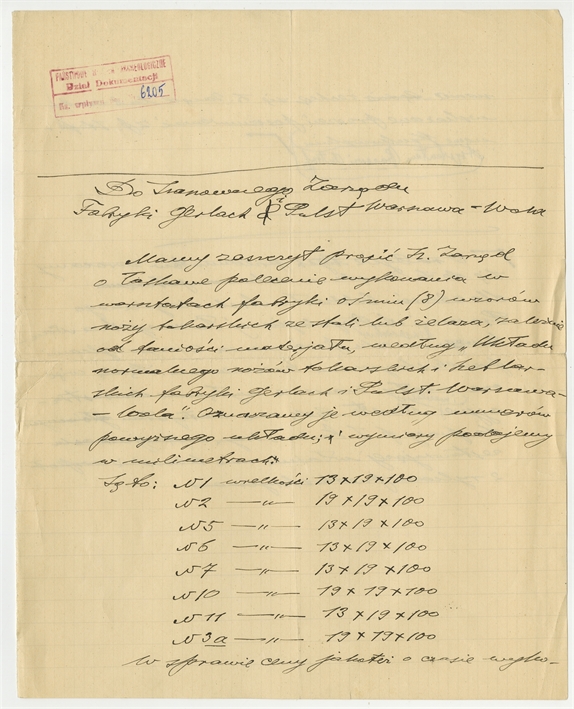 PAŃSTWOWE
Dział Dokumentacji
Nr. wpływu 6205
Do Szanownego Zarządu
Fabryki Gerlach i Pulst Warszawa-Wola
Mamy zaszczyt prosić Sz. Zarząd
o łaskawe polecenie wykonania w
warsztatach fabryki ośmiu (8) wzorów
noży tokarskich ze stali lub żelaza, zależnie
od taniości materjału, według „Układu
normalnego nożów tokarskich i heblar-
skich fabryki Gerlach i Pulst. Warszawa-
-Wola". Oznaczamy je według numerów
powyższego układu, i wymiary podajemy
w milimetrach:
Są to: N1 wielkości 13×19×100
N2 —„— 19×19×100
N5 —„— 13×19×100
N6 —„— 13×19×100
N7 —„— 13×19×100
N10 —„— 19×19×100
N11 —„— 13×19×100
N3a —„— 19×19×100
W sprawie ceny jakoteż o czasie wyko-